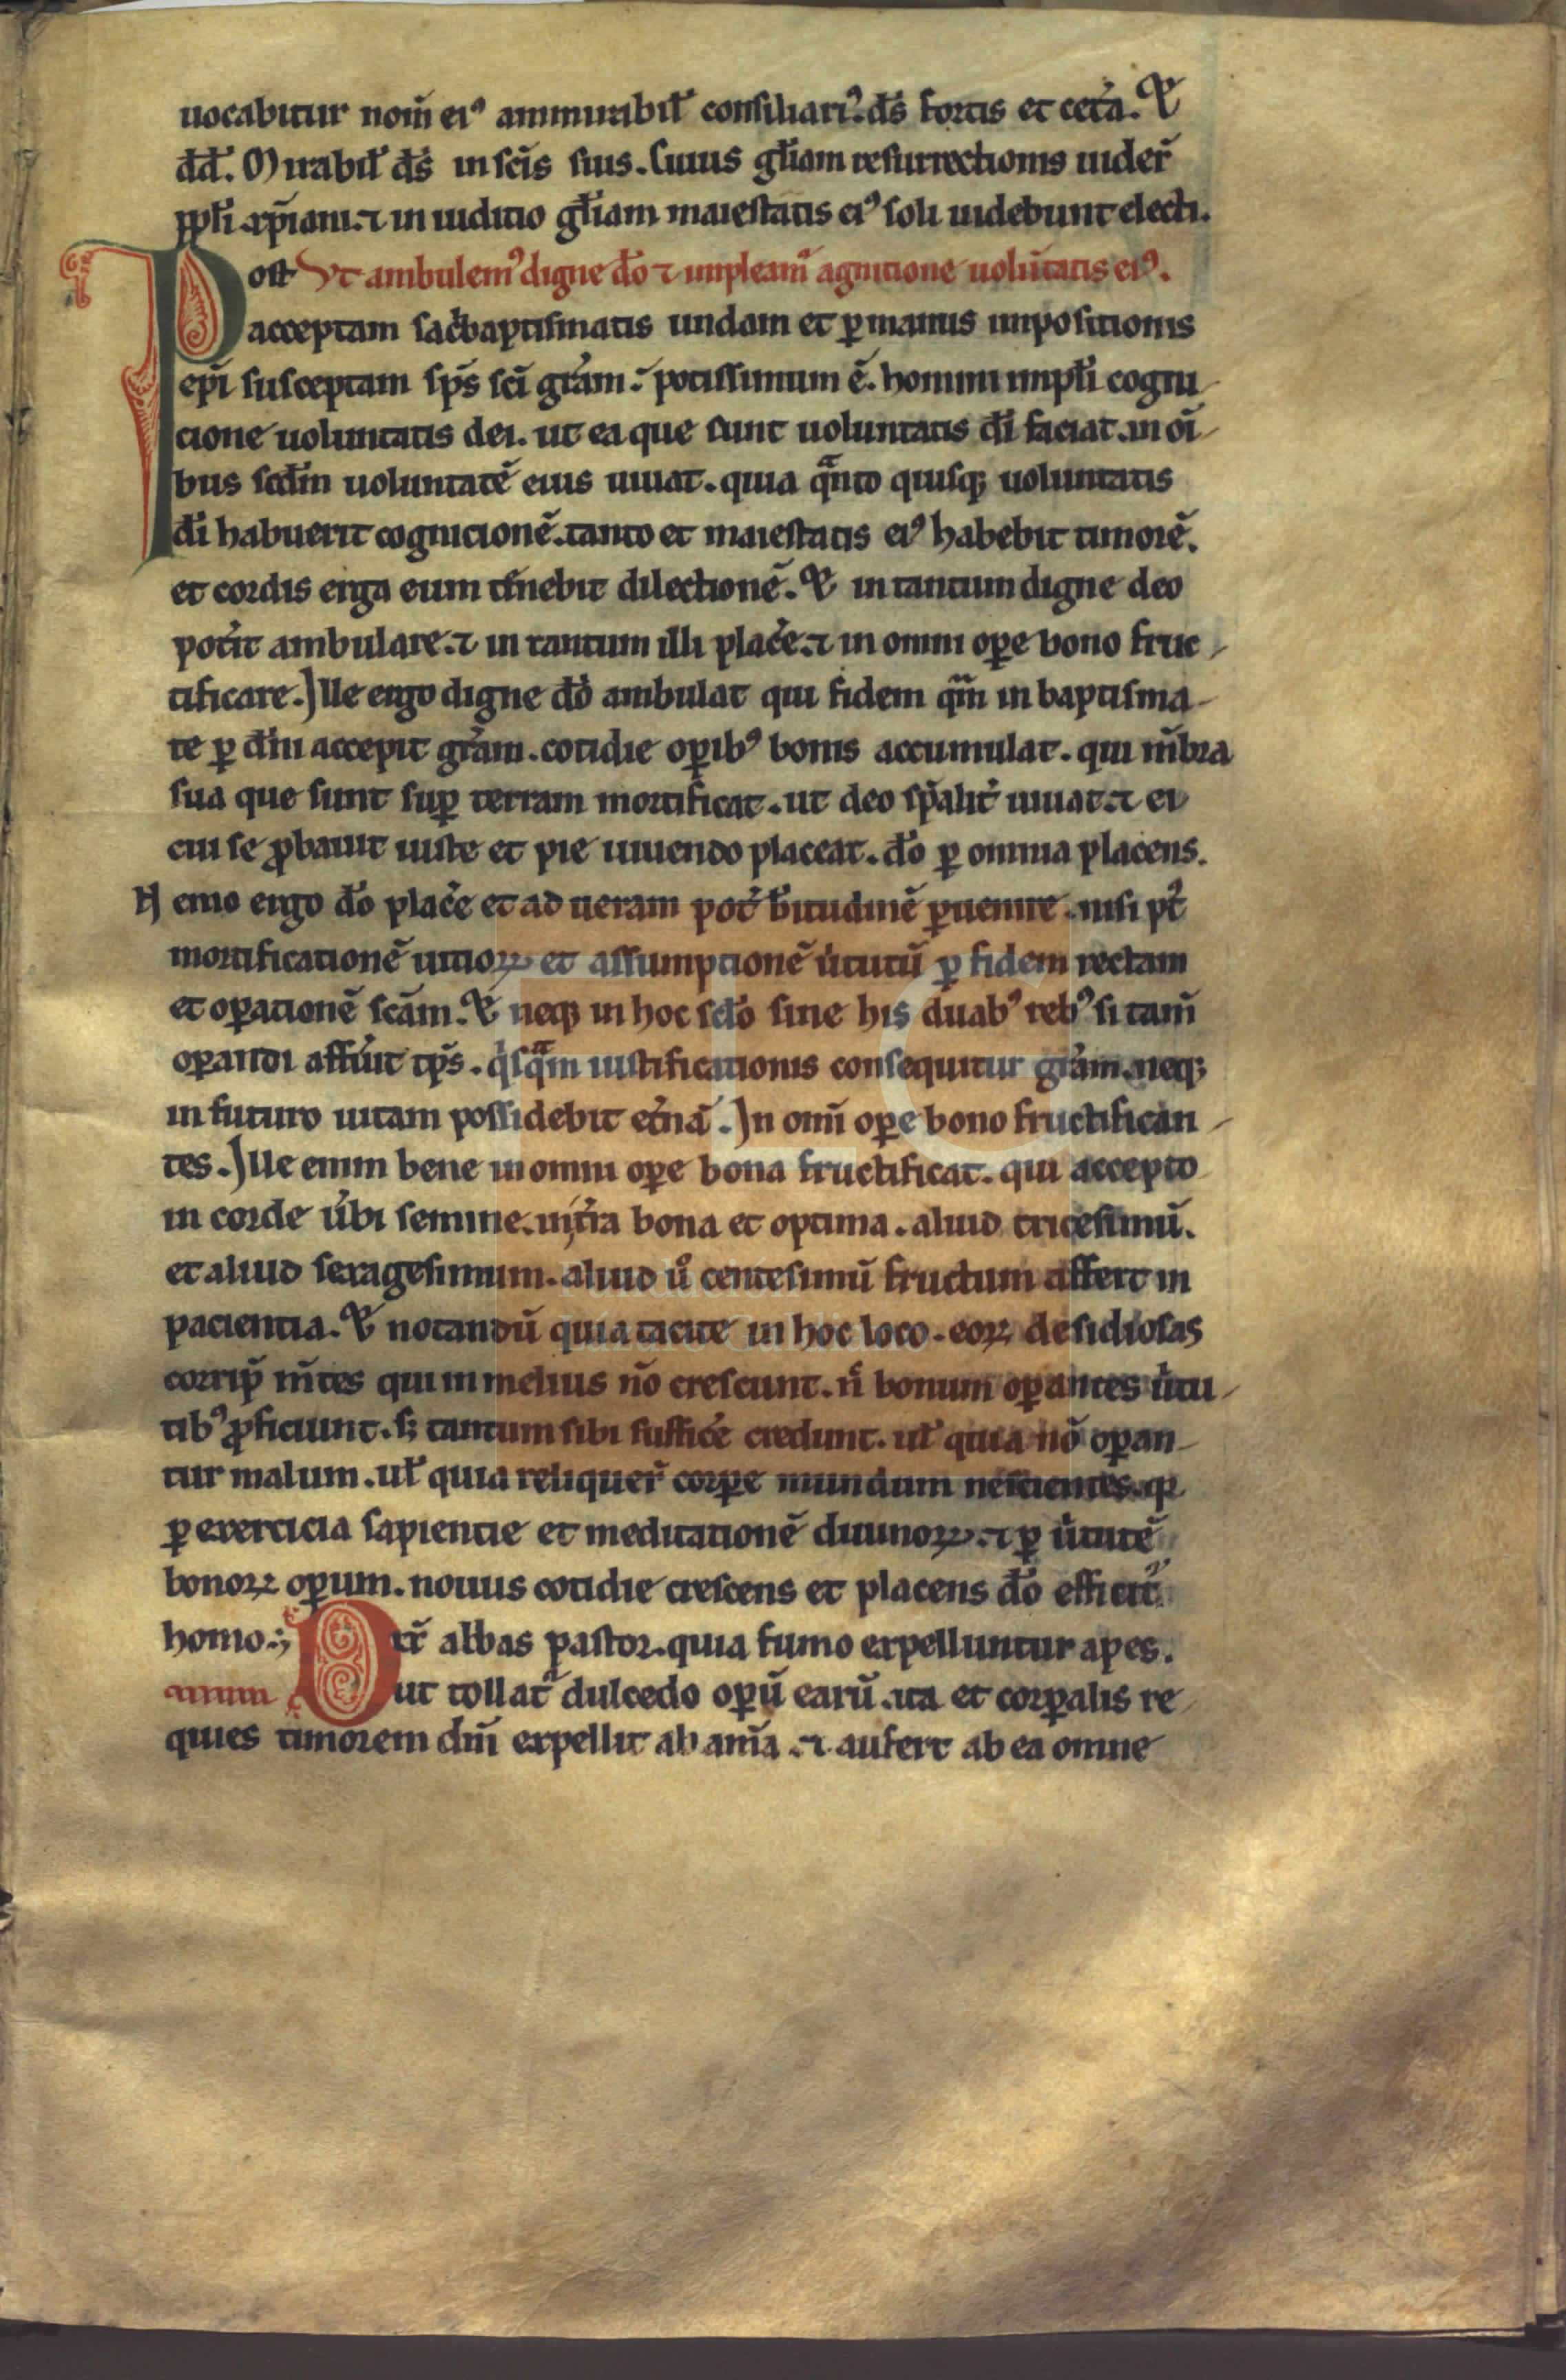 uocabitur nom̄ eiꝰ ammirabil̛ consiliariꝰ. ds̄ fortis et cet̛a. Et
dd̄. Mirabil̛ ds̄ in scīs suis. Cuius gl̄iam resurrectionis uider̄
ppl̄i xp̄iani. ⁊ in iuditio gl̄iam maiestatis eiꝰ soli uidebunt electi.
Post Vt ambulemꝰ digne dō ⁊ impleam̛ agnitione uolūtatis eiꝰ.
acceptam sac̛ baptismatis undam et ꝑ manus impositionis
epī susceptam sps̄ scī gr̄am. potissimum ē. homini impl̄i cogni-
cione uoluntatis dei. ut ea que sunt uoluntatis dī faciat. in oī-
bus scd̄m uoluntatē eius uiuat. quia qͣnto quisqꝫ uoluntatis
dī habuerit cognicionē. tanto et maiestatis eiꝰ habebit timorē.
et cordis erga eum t̄nebit dilectionē. Et in tantum digne deo
pot̛it ambulare. ⁊ in tantum illi plac̛e. ⁊ in omni oꝑe bono fruc-
tificare. Ille ergo digne dō ambulat qui fidem qͣm in baptisma-
te ꝑ dīm accepit gr̄am. cotidie oꝑibꝰ bonis accumulat. qui mēbra
sua que sunt suꝑ terram mortificat. ut deo sp̄alit̛ uiuat. ⁊ ei
cui se ꝓbauit iuste et pie uiuendo placeat. dō ꝑ omnia placens.
Nemo ergo dō plac̛e et ad ueram pot̛ b̄itudinē ꝑuenire. nisi pt̛
mortificationē uitioꝝ et assumptionē ưtutū ꝑ fidem rectam
et oꝑationē scām. Et neqꝫ in hoc scl̄o sine his duabꝰ rebꝰ si tam̄
oꝑandi affưit tp̄s. qͥsqͣm iustificationis consequitur gr̄am. neqꝫ
in futuro uitam possidebit et̛nā. In omī oꝑe bono fructifican-
tes. Ille enim bene in omni oꝑe bona fructificat. qui accepto
in corde ưbi semine. in t̛ra bona et optima. aliud tricesimū.
et aliud sexagesimum. aliud uͦ centesimū fructum affert in
pacientia. Et notandū quia tacite in hoc loco. eoꝝ desidiosas
corrip̄ m̄tes qui in melius nō crescunt. n̄ bonum oꝑantes ưtu-
tibꝰ ꝓficiunt. sꝫ tantum sibi suffic̛e credunt. ul̛ quia nō oꝑan-
tur malum. ul̛ quia reliquer̄ corꝑe mundum nescientes. qꝛ
ꝑ exercicia sapientie et meditationē diuinoꝝ. ⁊ ꝑ ưtutē
bonoꝝ oꝑum. nouus cotidie crescens et placens dō efficit᷑
homo. Dix̄ abbas pastor. quia fumo expelluntur apes.
ut tollat᷑ dulcedo oꝑū earū. ita et corꝑalis re-
quies timorem dn̄i expellit ab anīa. ⁊ aufert ab ea omne